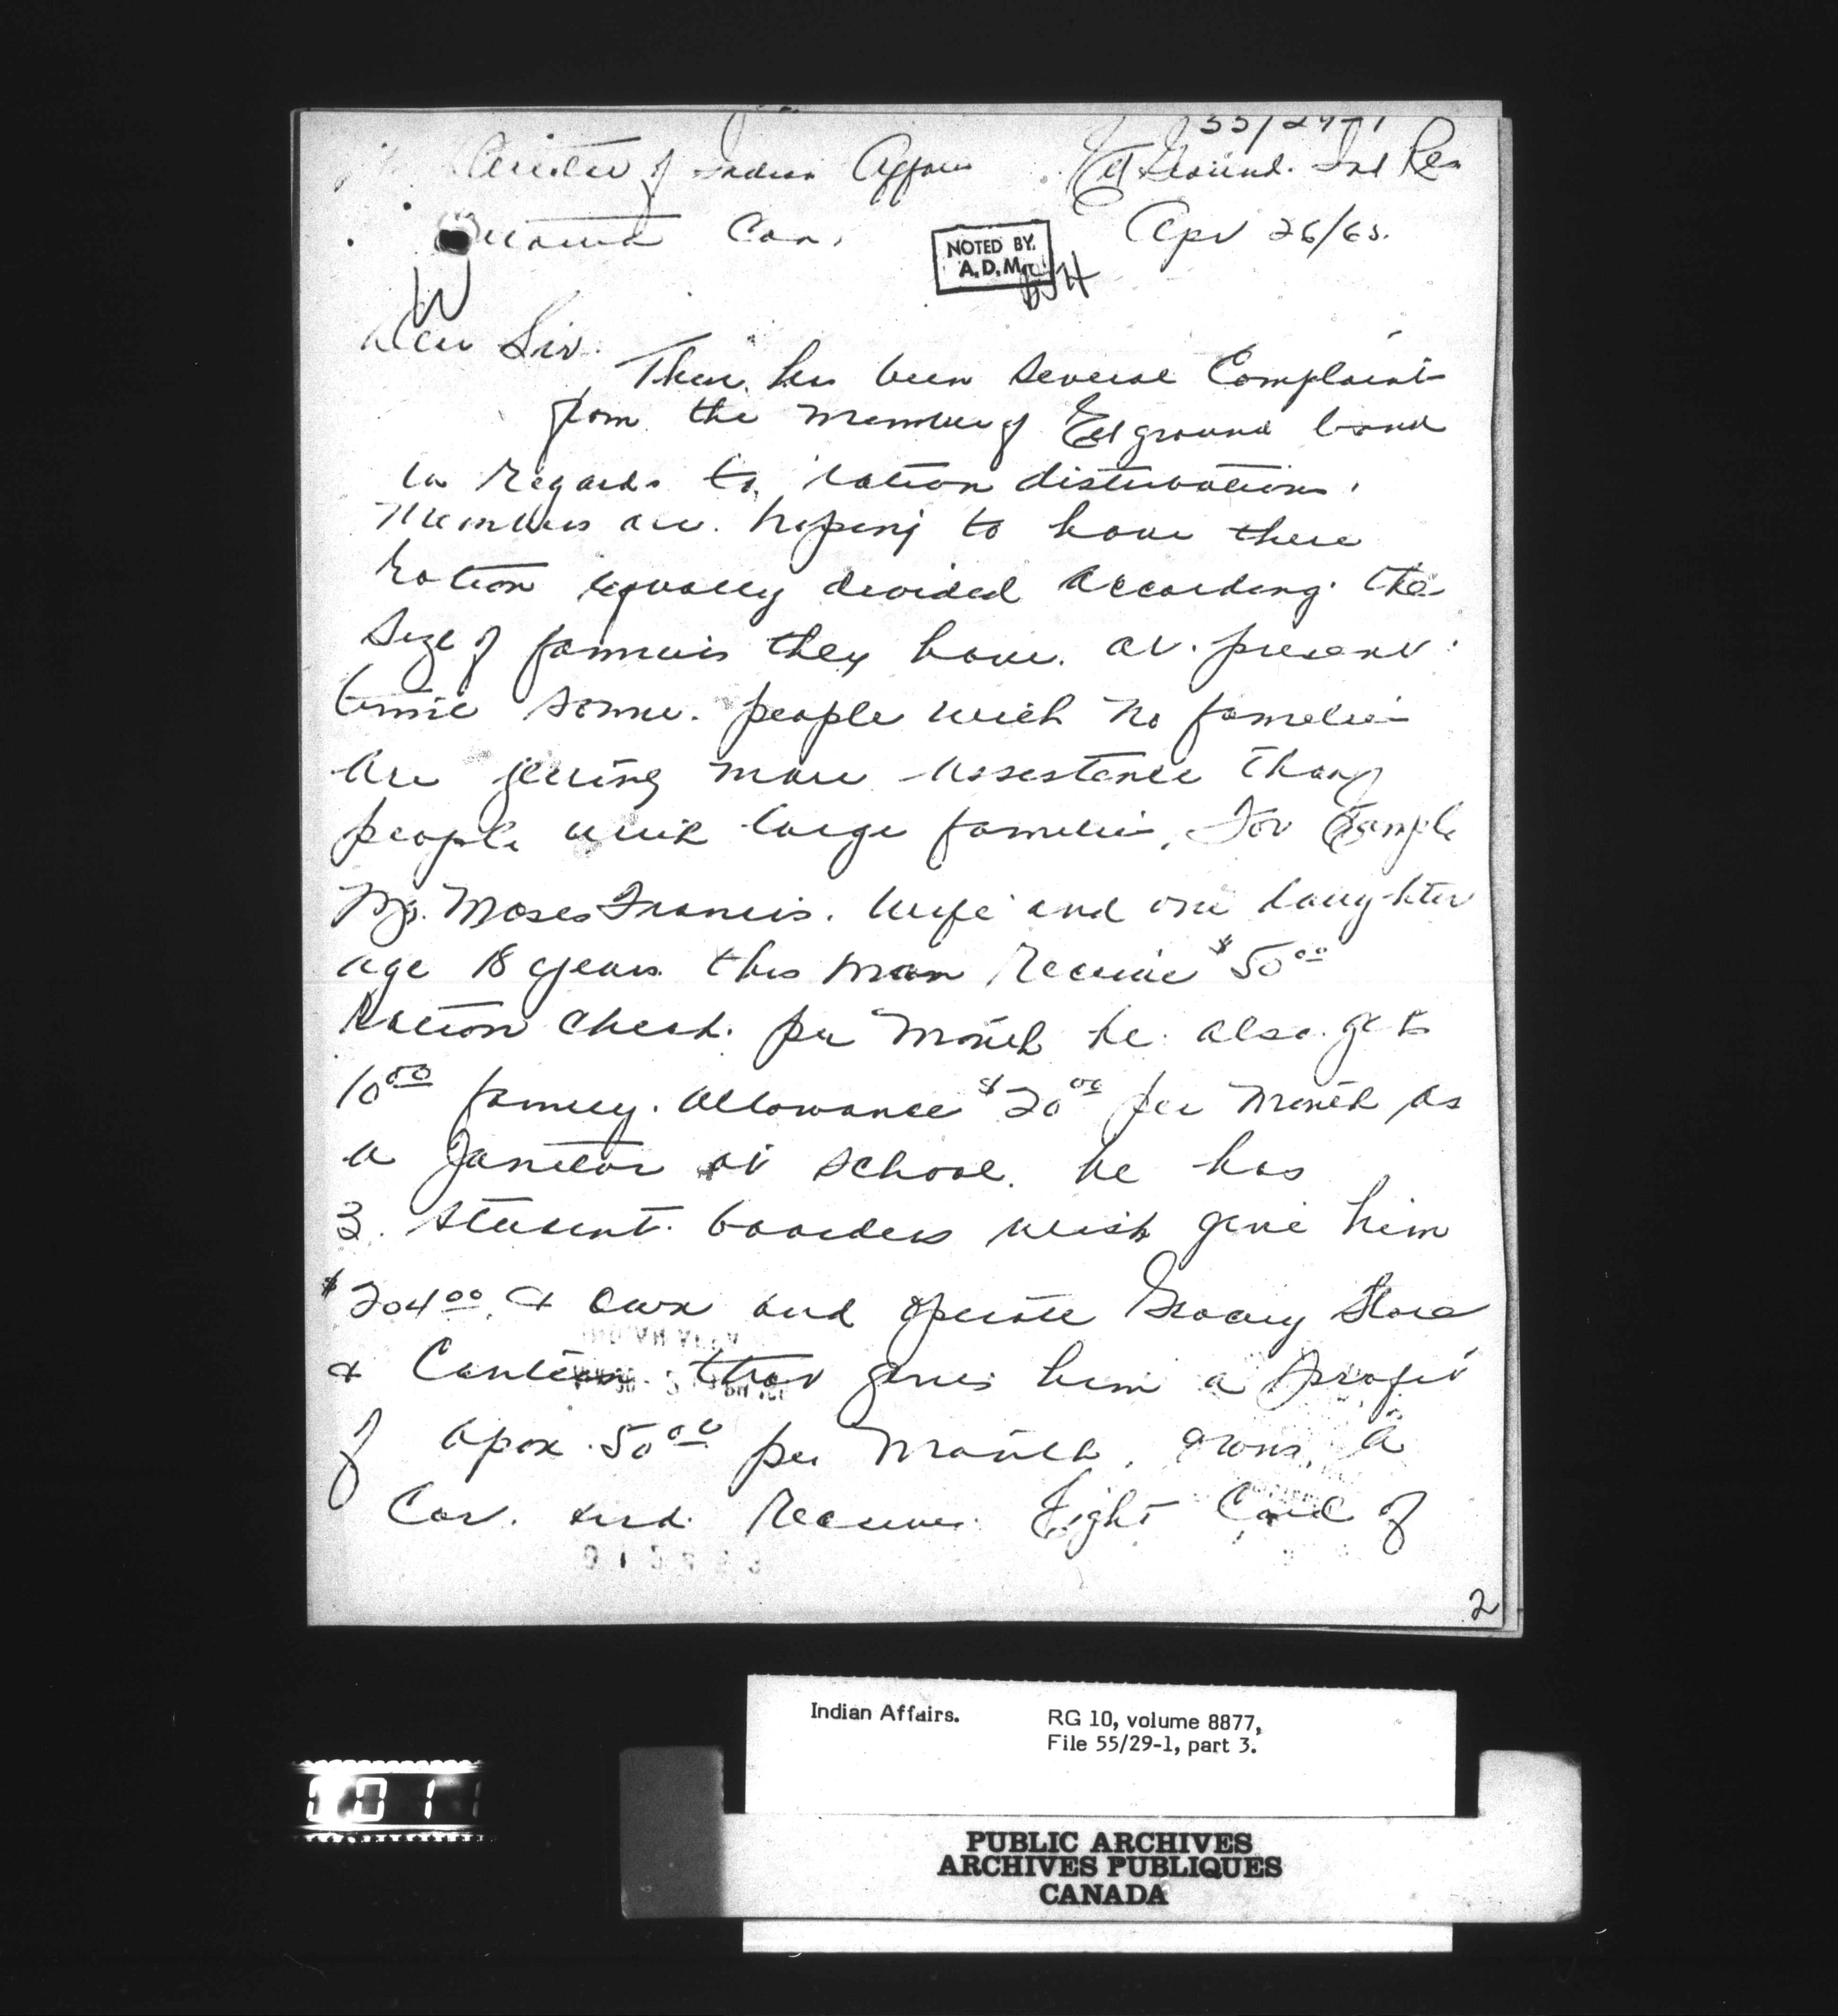 55/29-1
Minister of Indian Affairs
Eel Ground. Ind Res
Ottawa Can.
Apr 26/63.
NOTED BY
A.D.M.
Dear Sir.
There has been several Complaints
from the members of Eel ground band
in regards to ration distrubation.
Members are hoping to have there
ration equally divided according the
size of families they have. at present
time some people with no families
are getting more assistance than
people with large families, For Example
Mr. Moses Francis. wife and one daughter
age 18 years this man receive $50.00
Ration check per month he also gets
10.00 family allowance $20.00 per month as
a Janitor at school. he has
3. student boarders wish give him
$204.00. & own and operate Grocery Store
& Canteen that gives him a profit
of apox 50.00 per month. owns a
Car. and receives Fight Card of
2
Indian Affairs.
RG 10, volume 8877,
File 55/29-1, part 3.
PUBLIC ARCHIVES
ARCHIVES PUBLIQUES
CANADA